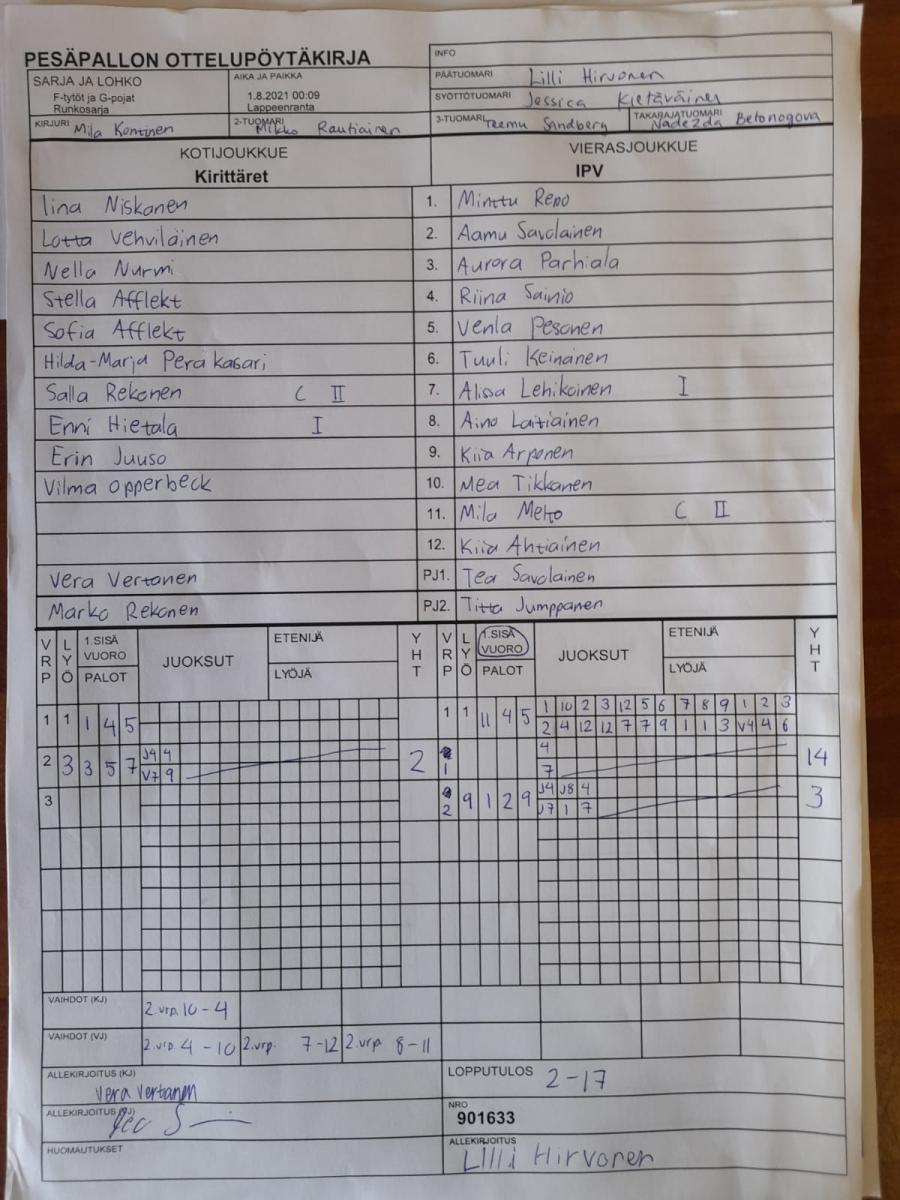 PESÄPALLON OTTELUPÖYTÄKIRJA
INFO
SARJA JA LOHKO
F-tytöt ja G-pojat
Runkosarja
AIKA JA PAIKKA
1.8.2021 00:09
Lappeenranta
PÄÄTUOMARI Lilli Hirvonen
SYÖTTÖTUOMARI Jessica Kietäväinen
KIRJURI Mila Kontinen
2-TUOMARI Mikko Rautiainen
3-TUOMARI Teemu Sandberg
TAKARAJATUOMARI Nadezda Betonogova
KOTIJOUKKUE
Kirittäret
VIERASJOUKKUE
IPV
Iina Niskanen 1. Minttu Repo
Lotta Vehviläinen 2. Aamu Savolainen
Nella Nurmi 3. Aurora Parhiala
Stella Afflekt 4. Riina Sainio
Sofia Afflekt 5. Venla Pesonen
Hilda-Marja Peräkasari 6. Tuuli Keinänen
Salla Rekonen C II 7. Alissa Lehikoinen I
Enni Hietala I 8. Aino Laitiainen
Erin Juuso 9. Kiia Arponen
Vilma Opperbeck 10. Mea Tikkanen
11. Mila Metto C II
12. Kiia Ahtiainen
Vera Vertanen PJ1. Tea Savolainen
Marko Rekonen PJ2. Titta Jumppanen
VRP LYÖ 1.SISÄ VUORO PALOT JUOKSUT ETENIJÄ LYÖJÄ YHT VRP LYÖ 1.SISÄ VUORO PALOT JUOKSUT ETENIJÄ LYÖJÄ YHT
1 1 1 4 5 1 1 11 4 5 1 10 2 3 12 5 6 7 8 9 1 2 3
2 4 12 12 7 7 9 1 1 3 V4 4 6
2 3 3 5 7 J4 4 2 1 4 14
V7 9 7
3 2 9 1 2 9 J4 J8 4 3
J7 1 7
VAIHDOT (KJ) 2.vrp. 10-4
VAIHDOT (VJ) 2.vrp. 4-10 2.vrp. 7-12 2.vrp 8-11
ALLEKIRJOITUS (KJ)
Vera Vertanen
LOPPUTULOS 2-17
ALLEKIRJOITUS (VJ)
NRO
901633
HUOMAUTUKSET
ALLEKIRJOITUS
Lilli Hirvonen